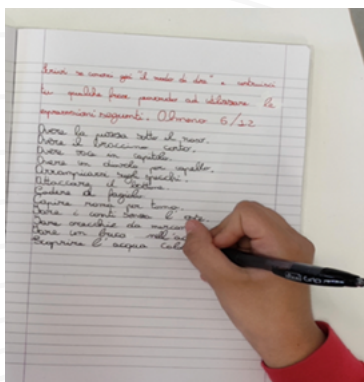 Scrivi se conosci già "il modo di dire" e costruisci
tu qualche frase provando ad utilizzare le
espressioni seguenti. Almeno 6/12
Avere la puzza sotto il naso.
Avere il braccino corto.
Avere voce in capitolo.
Avere un diavolo per capello.
Arrampicarsi sugli specchi.
Attaccare il bottone.
Cadere di fagiolo.
Capire roma per toma.
Fare i conti senza l'oste.
Fare orecchie da mercan
Fare un buco nell'ac
Scoprire l'acqua cal